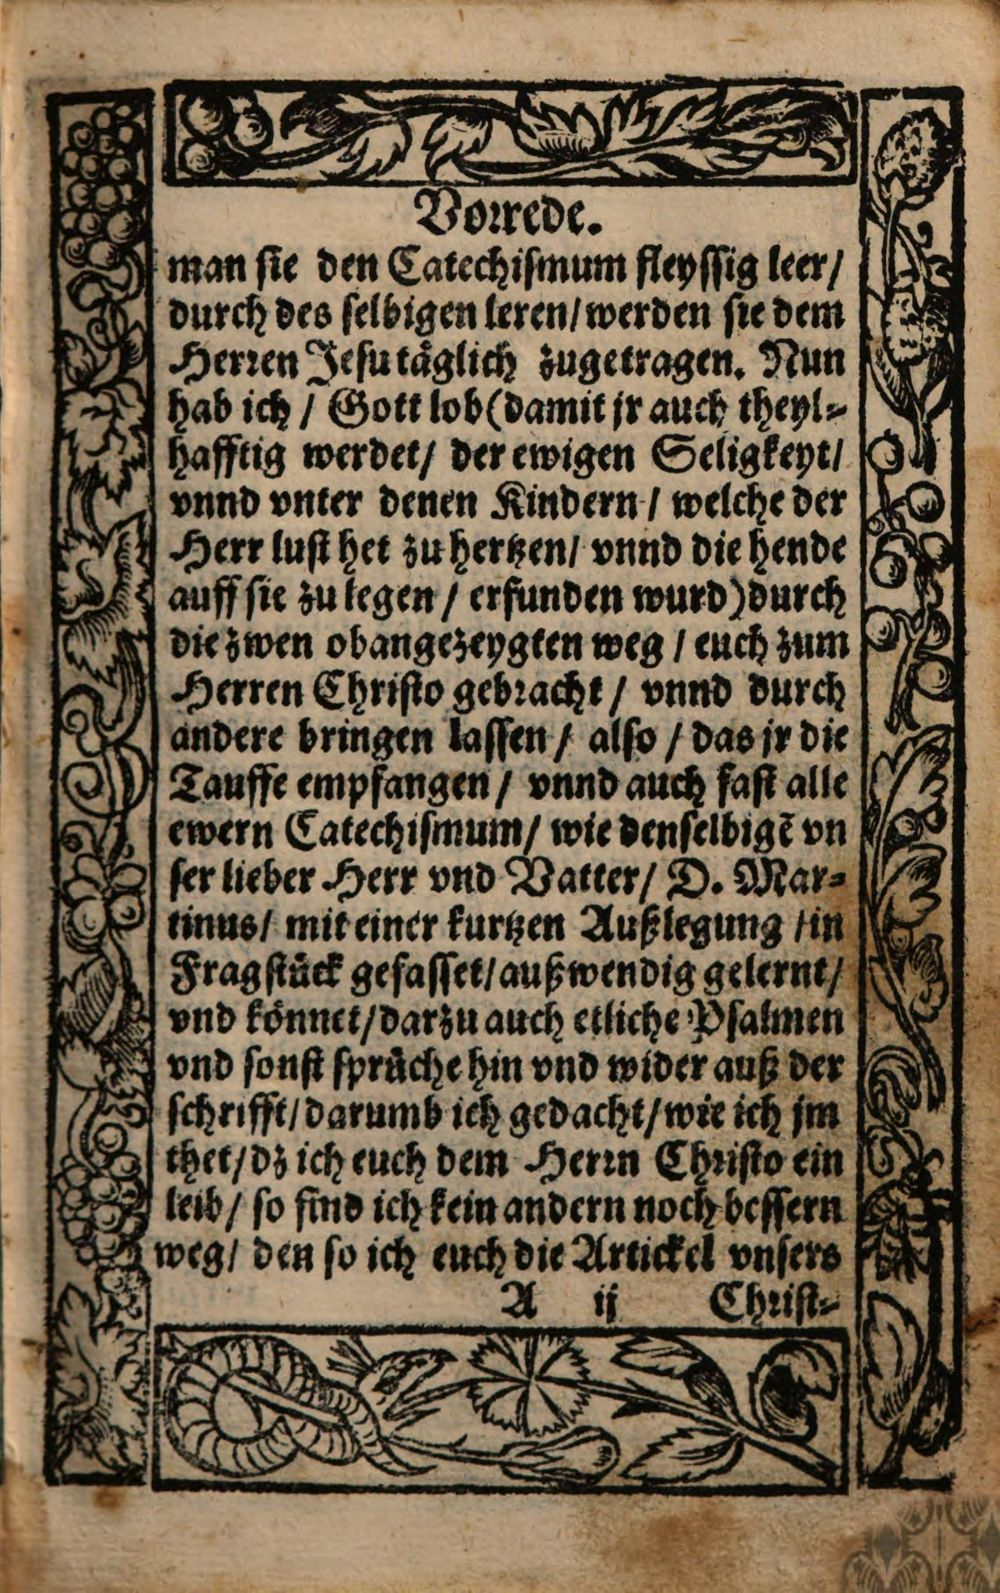 Vorrede.
man sie den Catechismum fleyssig leer/
durch des selbigen leren/ werden sie dem
Herren Jesu täglich zugetragen. Nun
hab ich / Gott lob (damit jr auch theyl-
hafftig werdet/ der ewigen Seligkeyt/
vnnd vnter denen Kindern / welche der
Herr lust het zu hertzen/ vnnd die hende
auff sie zu legen / erfunden wurd) durch
die zwen obangezeygten weg / euch zum
Herren Christo gebracht / vnnd durch
andere bringen lassen / also / das jr die
Tauffe empfangen / vnnd auch fast alle
ewern Catechismum/ wie denselbigē vn
ser lieber Herr vnd Vatter/ D. Mar-
tinus/ mit einer kurtzen Außlegung / in
Fragstück gefasset/ außwendig gelernt/
vnd könnet/ darzu auch etliche Psalmen
vnd sonst sprüche hin vnd wider auß der
schrifft/ darumb ich gedacht/ wie ich jm
thet/ dz ich euch dem Herrn Christo ein
leib/ so find ich kein andern noch bessern
weg/ den so ich euch die Artickel vnsers
A ij Christ-